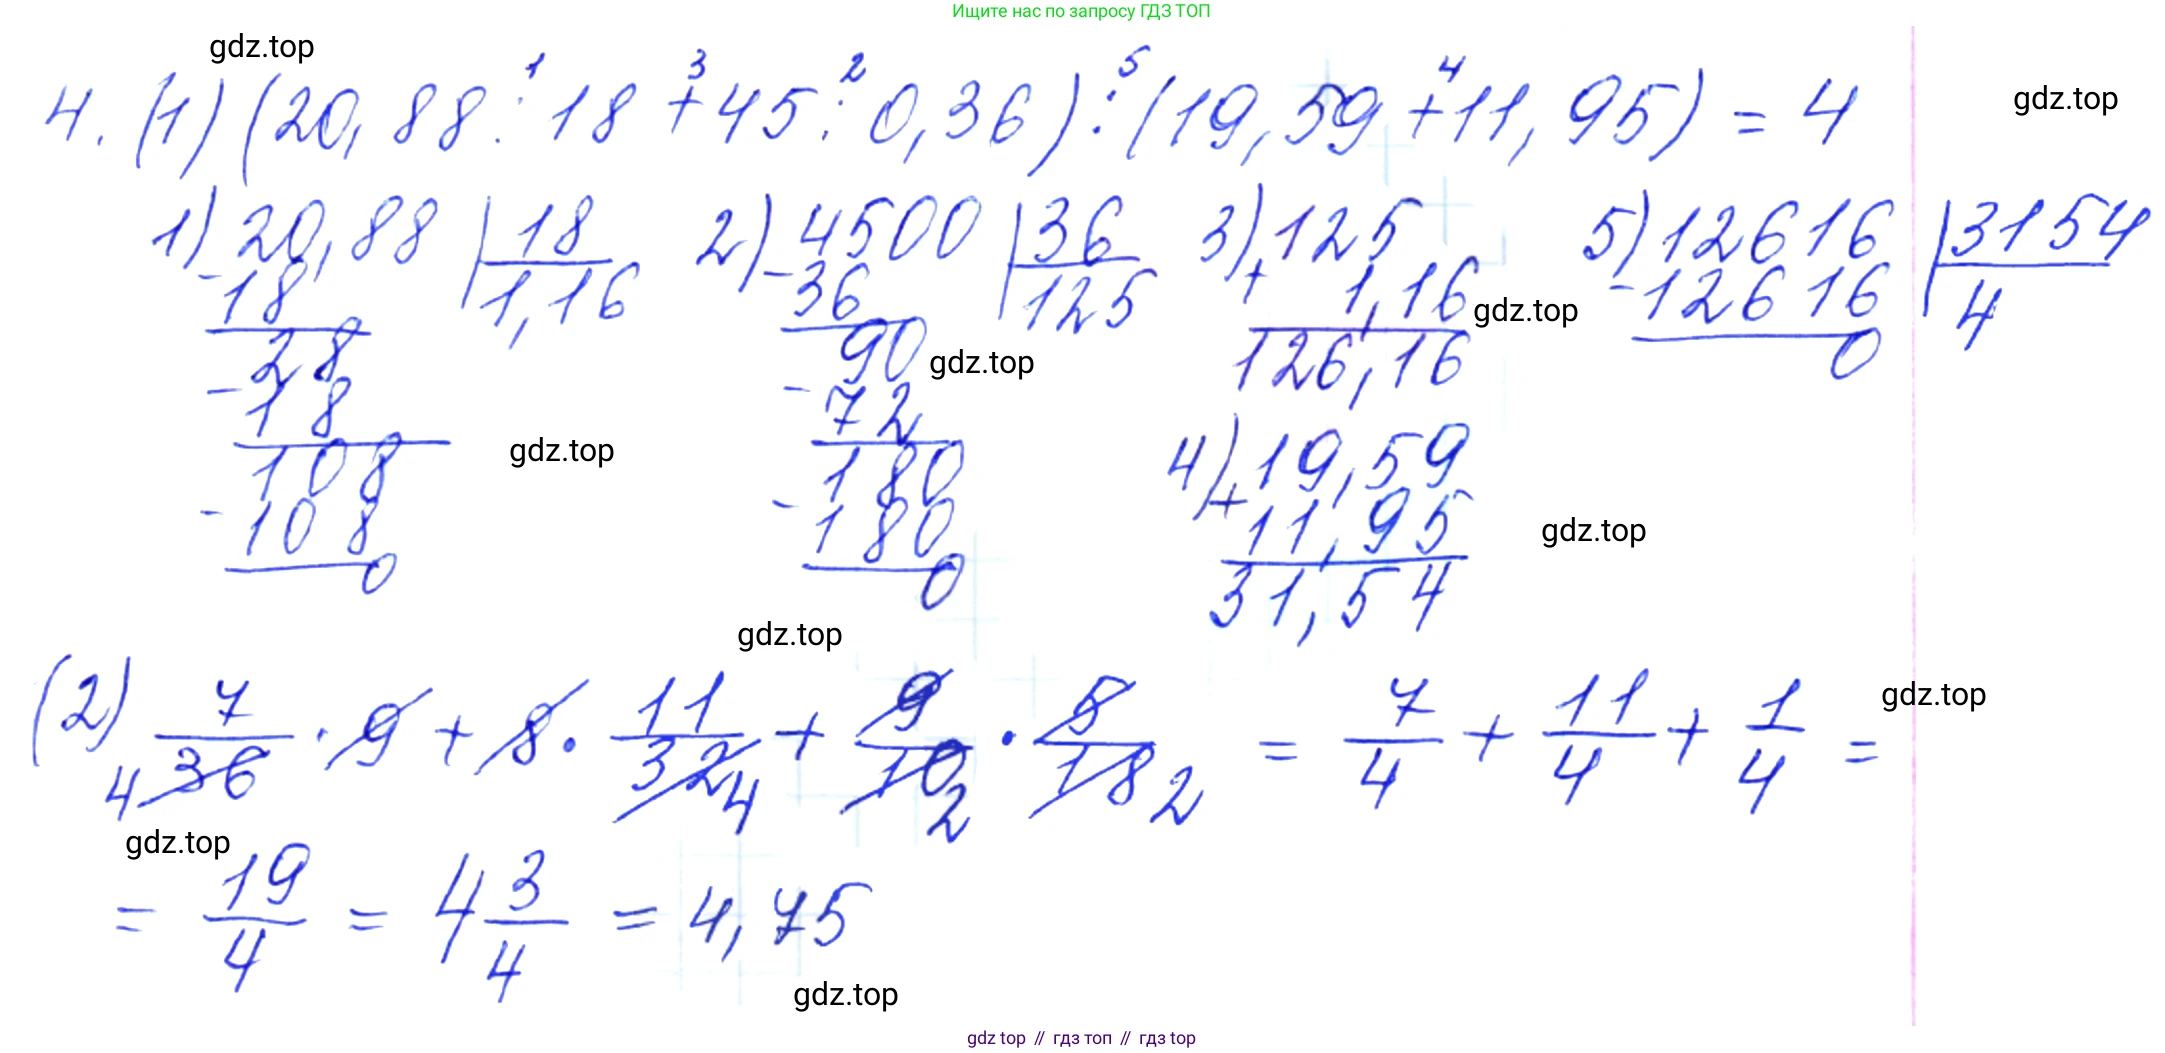 Ищите нас по запросу ГДЗ ТОП
gdz.top
4. (1) (20,88 : 18 + 45 : 0,36) : (19,59 + 11,95) = 4
1 3 2 5 4
gdz.top
1) 20,88 | 18
- 18 | 1,16
28
- 18
108
- 108
0
2) 4500 | 36
- 36 | 125
90
- 72
180
- 180
0
3) 125
+ 1,16
126,16
4) 19,59
+ 11,95
31,54
5) 12616 | 3154
- 12616 | 4
0
gdz.top
gdz.top
gdz.top
gdz.top
gdz.top
(2) 7/36 · 9 + 8 · 11/32 + 9/10 · 5/18 = 7/4 + 11/4 + 1/4 =
4 4 2 2
gdz.top
gdz.top
= 19/4 = 4 3/4 = 4,75
gdz.top
gdz top // гдз топ // гдз top